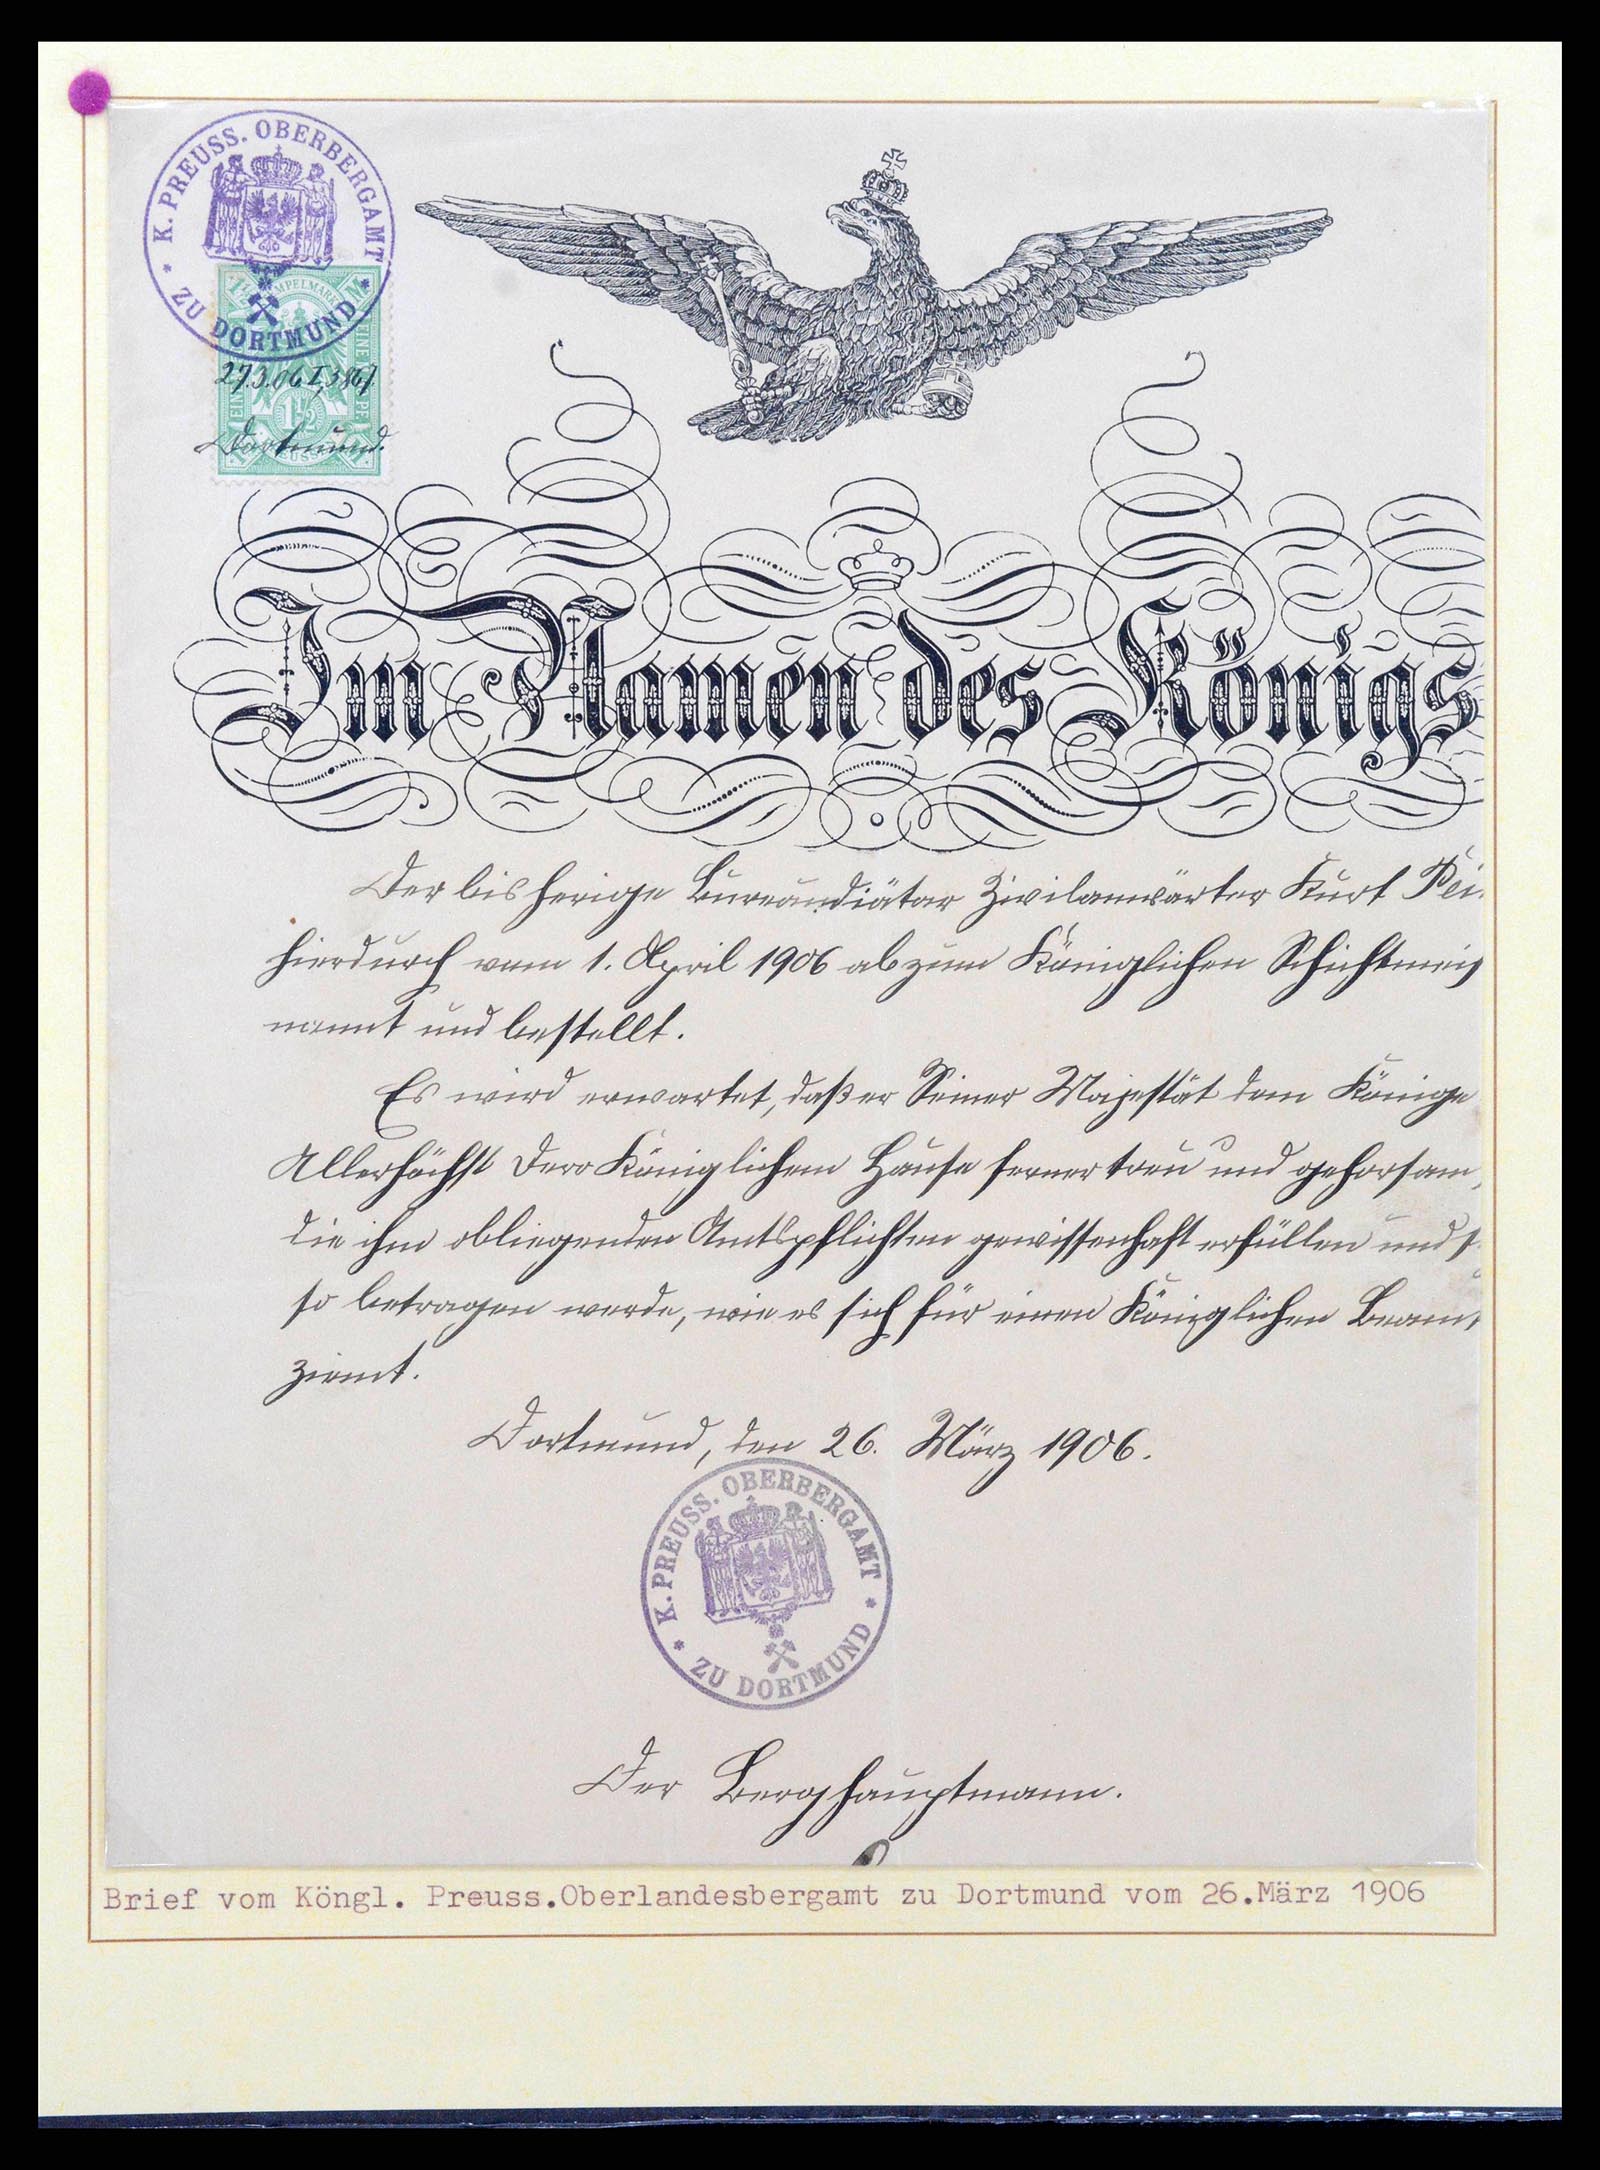 K. PREUSS. OBERBERGAMT
* ZU DORTMUND *
27.3.06 I, 3867.
1½
Dortmund.
Im Namen des Königs
Der bisherige Bureaudiätar Zivilanwärter Kurt Pei
hierdurch vom 1. April 1906 ab zum Königlichen Schichtmeis
nannt und bestellt.
Es wird erwartet, daß er Seiner Majestät dem Könige
Allerhöchst Dero Königlichem Hause ferner treu und gehorsam,
die ihm obliegenden Amtspflichten gewissenhaft erfüllen und s
so betragen werde, wie es sich für einen Königlichen Beam
ziemt.
Dortmund, den 26. März 1906.
K. PREUSS. OBERBERGAMT
* ZU DORTMUND *
Der Berghauptmann.
Brief vom Köngl. Preuss.Oberlandesbergamt zu Dortmund vom 26.März 1906